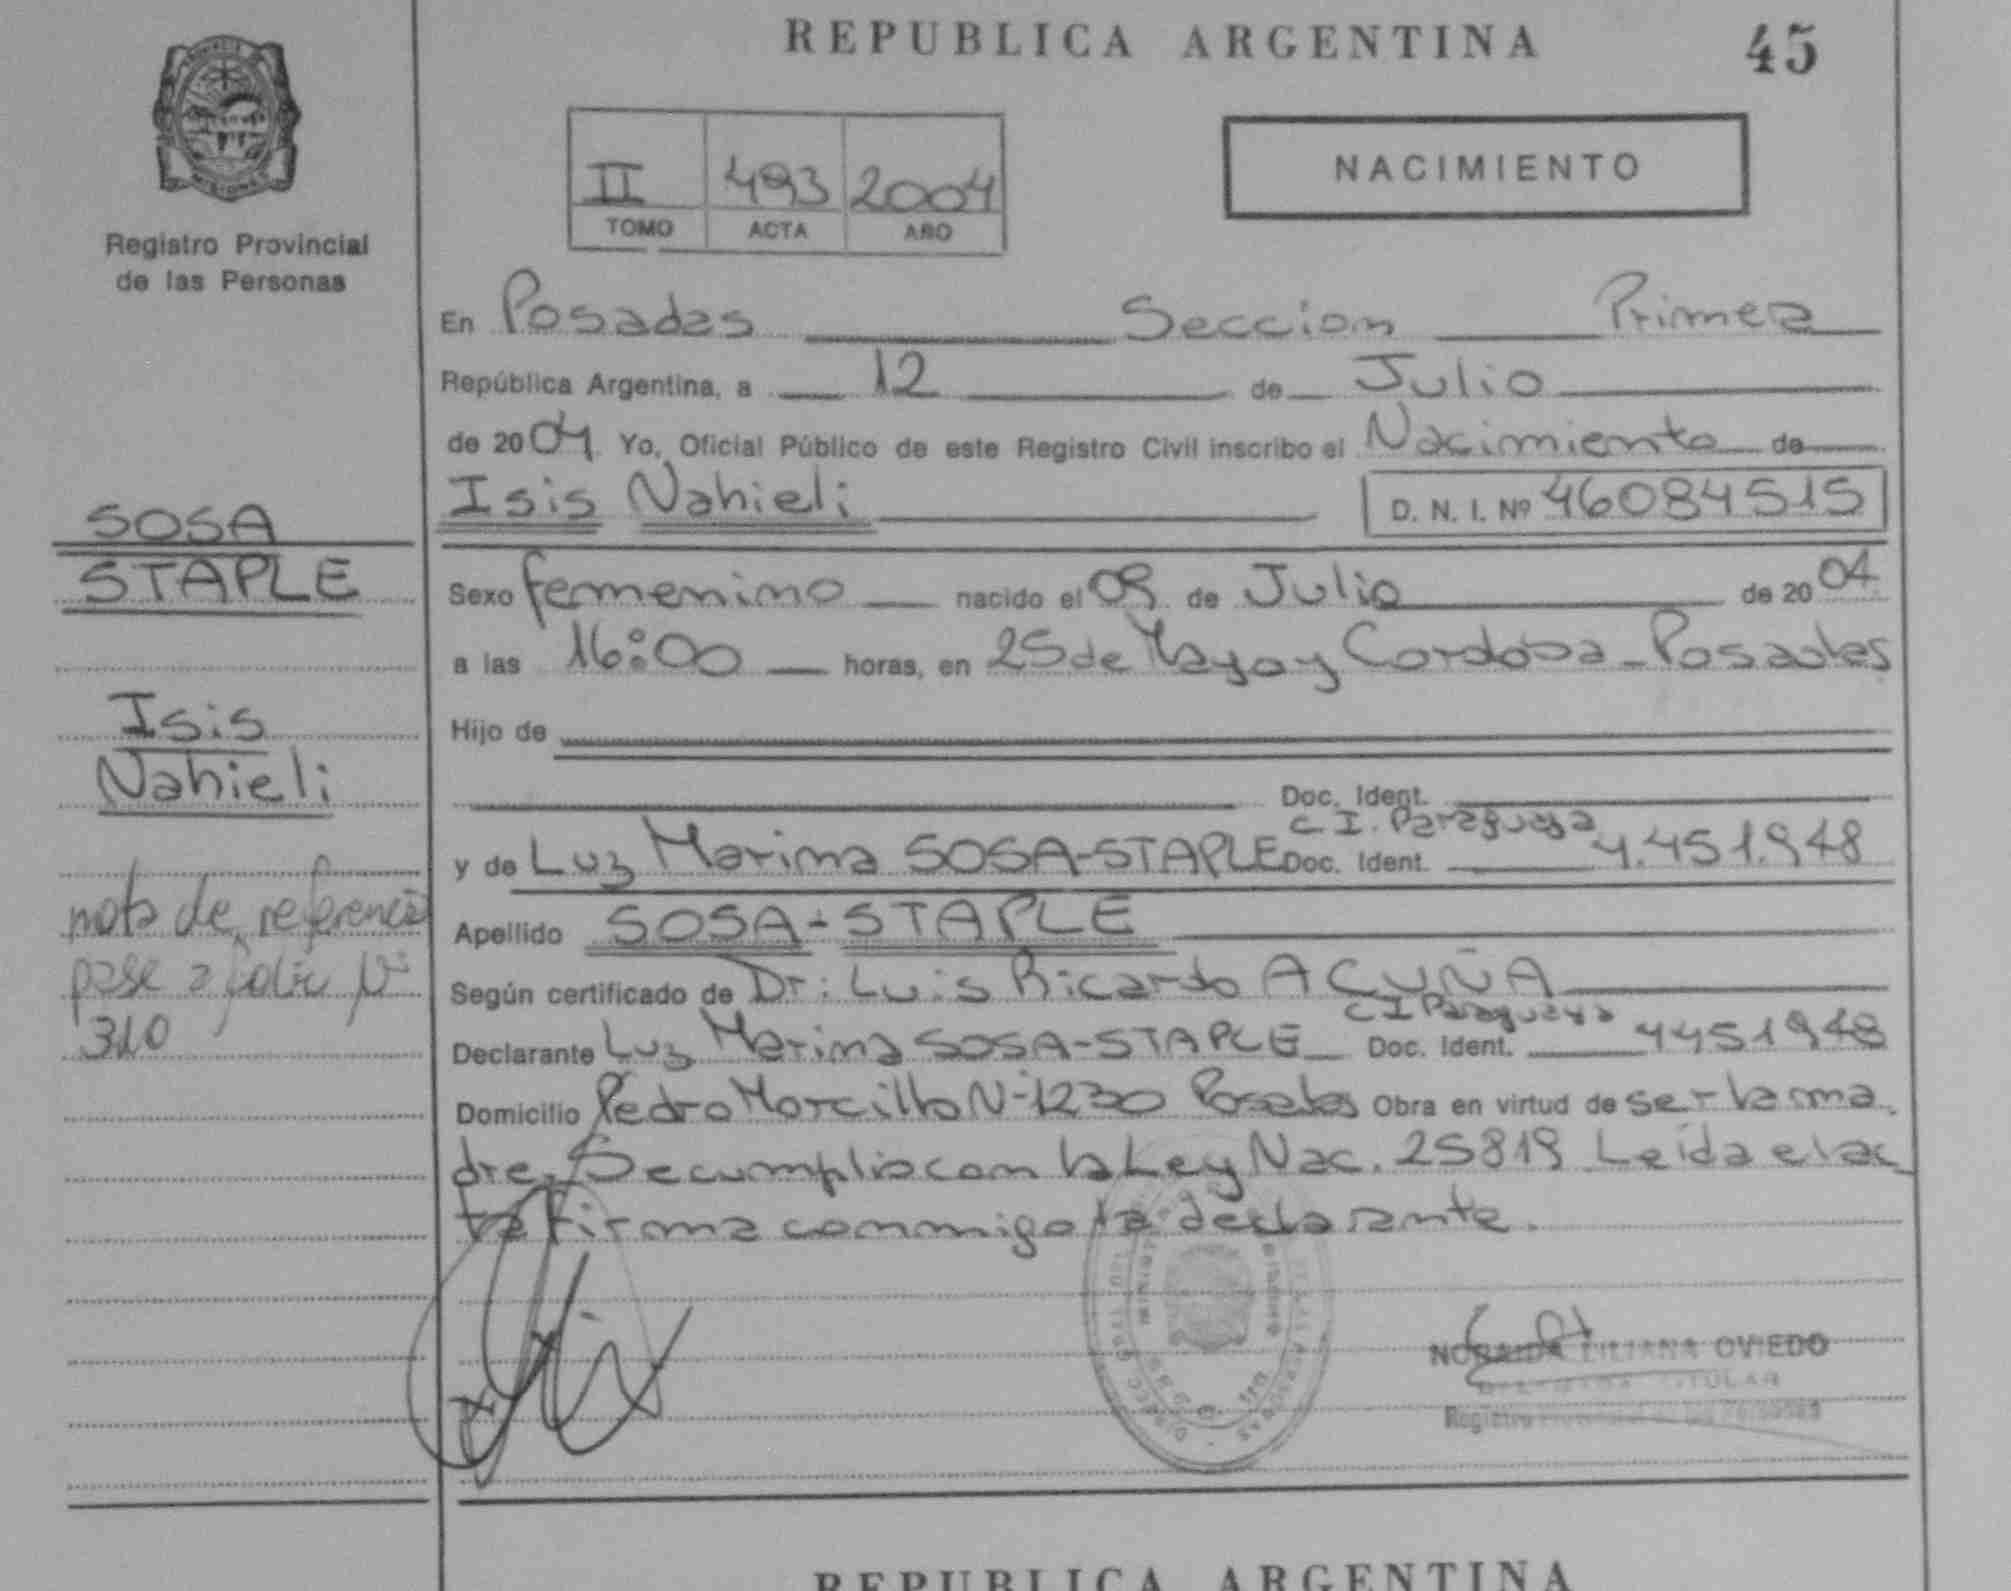 REPUBLICA ARGENTINA
45
MISIONES
Registro Provincial
de las Personas
II 493 2004
TOMO ACTA AÑO
NACIMIENTO
En Posadas Seccion Primera
República Argentina, a 12 de Julio
de 2004. Yo, Oficial Público de este Registro Civil inscribo el Nacimiento de
Isis Nahieli D. N. I. Nº 46084515
SOSA
STAPLE
Isis
Nahieli
nota de referencia
pase a folio Nº
310
Sexo femenino nacido el 09 de Julio de 2004
a las 16:00 horas, en 25 de Mayo y Cordoba - Posadas
Hijo de
Doc. Ident.
C I. Paraguaya
y de Luz Marina SOSA-STAPLE Doc. Ident. 4.451.948
Apellido SOSA-STAPLE
Según certificado de Dr: Luis Ricardo ACUÑA
C I Paraguaya
Declarante Luz Marina SOSA-STAPLE Doc. Ident. 4451948
Domicilio Pedro Morcillo Nº 1230 Posadas Obra en virtud de ser la ma
dre. Se cumplio con la Ley Nac. 25819 Leída el ac
ta firma conmigo la declarante.
NORAIDA LILIANA OVIEDO
TITULAR
Registro Provincial de las Personas
REPUBLICA ARGENTINA